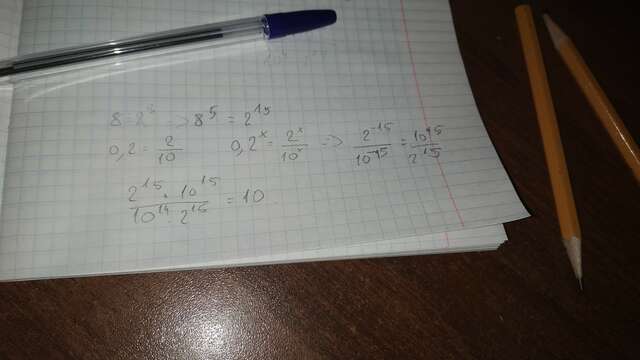 8=2³ => 8⁵ = 2¹⁵
0,2 = 2/10 0,2ˣ = 2ˣ/10ˣ => 2⁻¹⁵/10⁻¹⁵ = 10¹⁵/2¹⁵
2¹⁵ · 10¹⁵ / 10¹⁴ · 2¹⁵ = 10